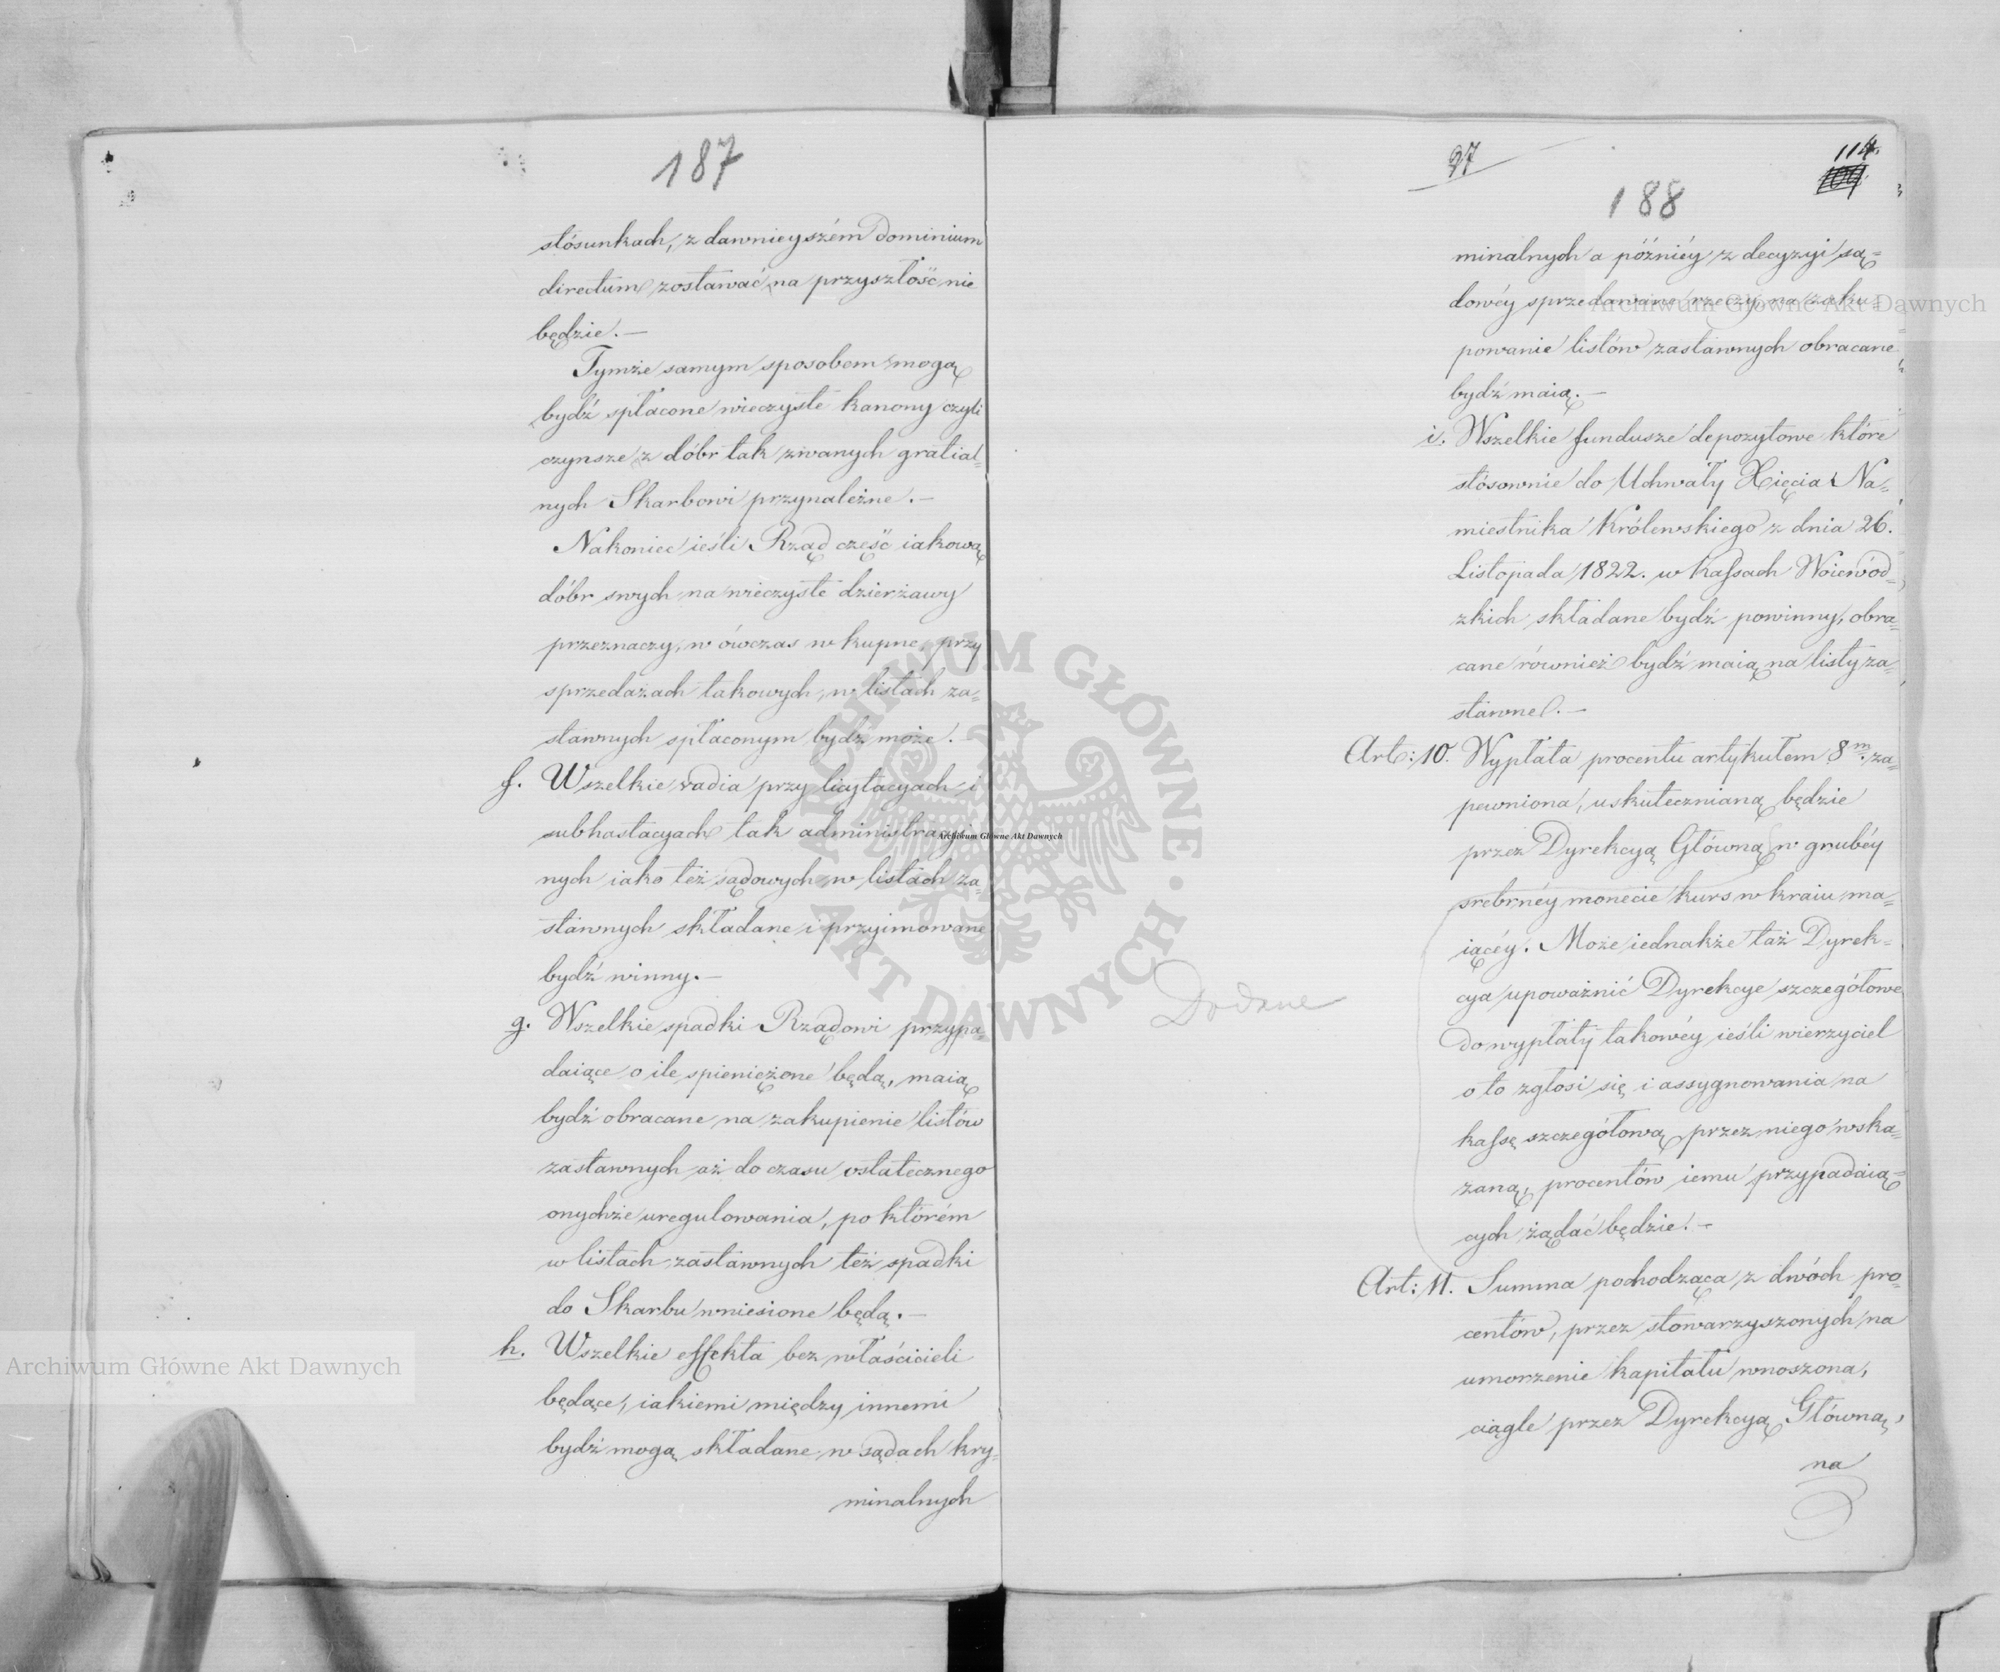 187
stósunkach, z dawnieyszém dominium
directum zostawać na przyszłość nie
będzie. —
Tymże samym sposobem mogą
bydź spłacone wieczyste kanony czyli
czynsze z dóbr tak zwanych gratial=
nych Skarbowi przynależne. —
Nakoniec ieśli Rząd część iakową
dóbr swych na wieczyste dzierżawy
przeznaczy, w ówczas wkupne, przy
sprzedażach takowych, w listach za=
stawnych spłaconym bydź może. —
f. Wszelkie vadia przy licytacyach i
subhastacyach tak administracyi
nych iako też sądowych w listach za=
stawnych składane i przyimowane
bydź winny. —
g. Wszelkie spadki Rządowi przypa=
daiące o ile spieniężone będą, maią
bydź obracane na zakupienie listów
zastawnych aż do czasu ostatecznego
onychże uregulowania, po którém
w listach zastawnych też spadki
do Skarbu wniesione będą. —
h. Wszelkie effekta bez właścicieli
będące, iakiemi między innemi
bydź mogą składane w sądach kry=
minalnych
97
114.
188
minalnych a późniéy z decyzyi są=
dowéy sprzedawane rzeczy na zaku=
powanie listów zastawnych obracane
bydź maią. —
i. Wszelkie fundusze depozytowe które
stósownie do Uchwały Xięcia Na=
miestnika Królewskiego z dnia 26.
Listopada 1822. w Kassach Woiewód=
zkich składane bydź powinny, obra=
cane również bydź maią na listy za=
stawne. —
Art: 10. Wypłata procentu artykułem 8m. za=
pewniona, uskutecznianą będzie
przez Dyrekcyą Główną w grubéy
srebrnéy monecie kurs w kraiu ma=
iącéy. Może iednakże taż Dyrek=
cya upoważnić Dyrekcye szczegółowe
do wypłaty takowéy ieśli wierzyciel
o to zgłosi się i assygnowania na
kassę szczegółową przez niego wska=
zaną, procentów iemu przypadaią=
cych żądać będzie. —
Dodane
Art: 11. Summa pochodząca z dwóch pro=
centów, przez stowarzyszonych na
umorzenie kapitału wnoszona,
ciągle przez Dyrekcyą Główną,
na
Archiwum Główne Akt Dawnych
ARCHIWUM GŁÓWNE AKT DAWNYCH
Archiwum Główne Akt Dawnych
Archiwum Główne Akt Dawnych